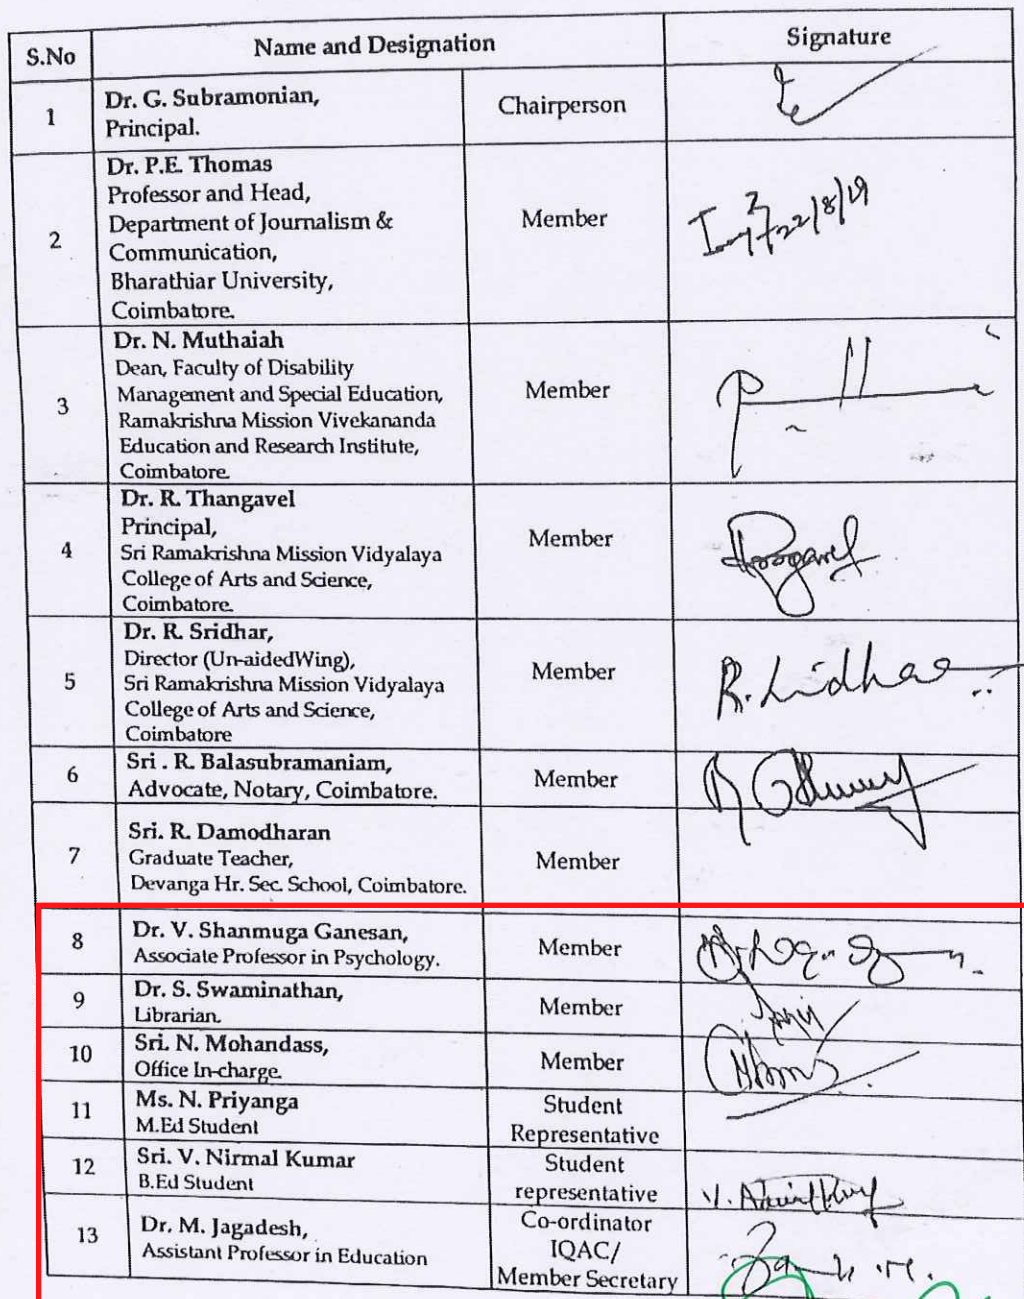 S.No Name and Designation Signature
1 Dr. G. Subramonian, Chairperson
Principal.
2 Dr. P.E. Thomas Member
Professor and Head,
Department of Journalism &
Communication,
Bharathiar University,
Coimbatore.
22/8/19
3 Dr. N. Muthaiah Member
Dean, Faculty of Disability
Management and Special Education,
Ramakrishna Mission Vivekananda
Education and Research Institute,
Coimbatore.
4 Dr. R. Thangavel Member
Principal,
Sri Ramakrishna Mission Vidyalaya
College of Arts and Science,
Coimbatore.
5 Dr. R. Sridhar, Member
Director (Un-aidedWing),
Sri Ramakrishna Mission Vidyalaya
College of Arts and Science,
Coimbatore
6 Sri . R. Balasubramaniam, Member
Advocate, Notary, Coimbatore.
7 Sri. R. Damodharan Member
Graduate Teacher,
Devanga Hr. Sec. School, Coimbatore.
8 Dr. V. Shanmuga Ganesan, Member
Associate Professor in Psychology.
9 Dr. S. Swaminathan, Member
Librarian.
10 Sri. N. Mohandass, Member
Office In-charge.
11 Ms. N. Priyanga Student
M.Ed Student Representative
12 Sri. V. Nirmal Kumar Student
B.Ed Student representative
13 Dr. M. Jagadesh, Co-ordinator
Assistant Professor in Education IQAC/
Member Secretary